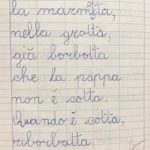 la marmotta,
nella grotta,
già borbotta
che la pappa
non è cotta.
Quando è cotta,
riborbotta